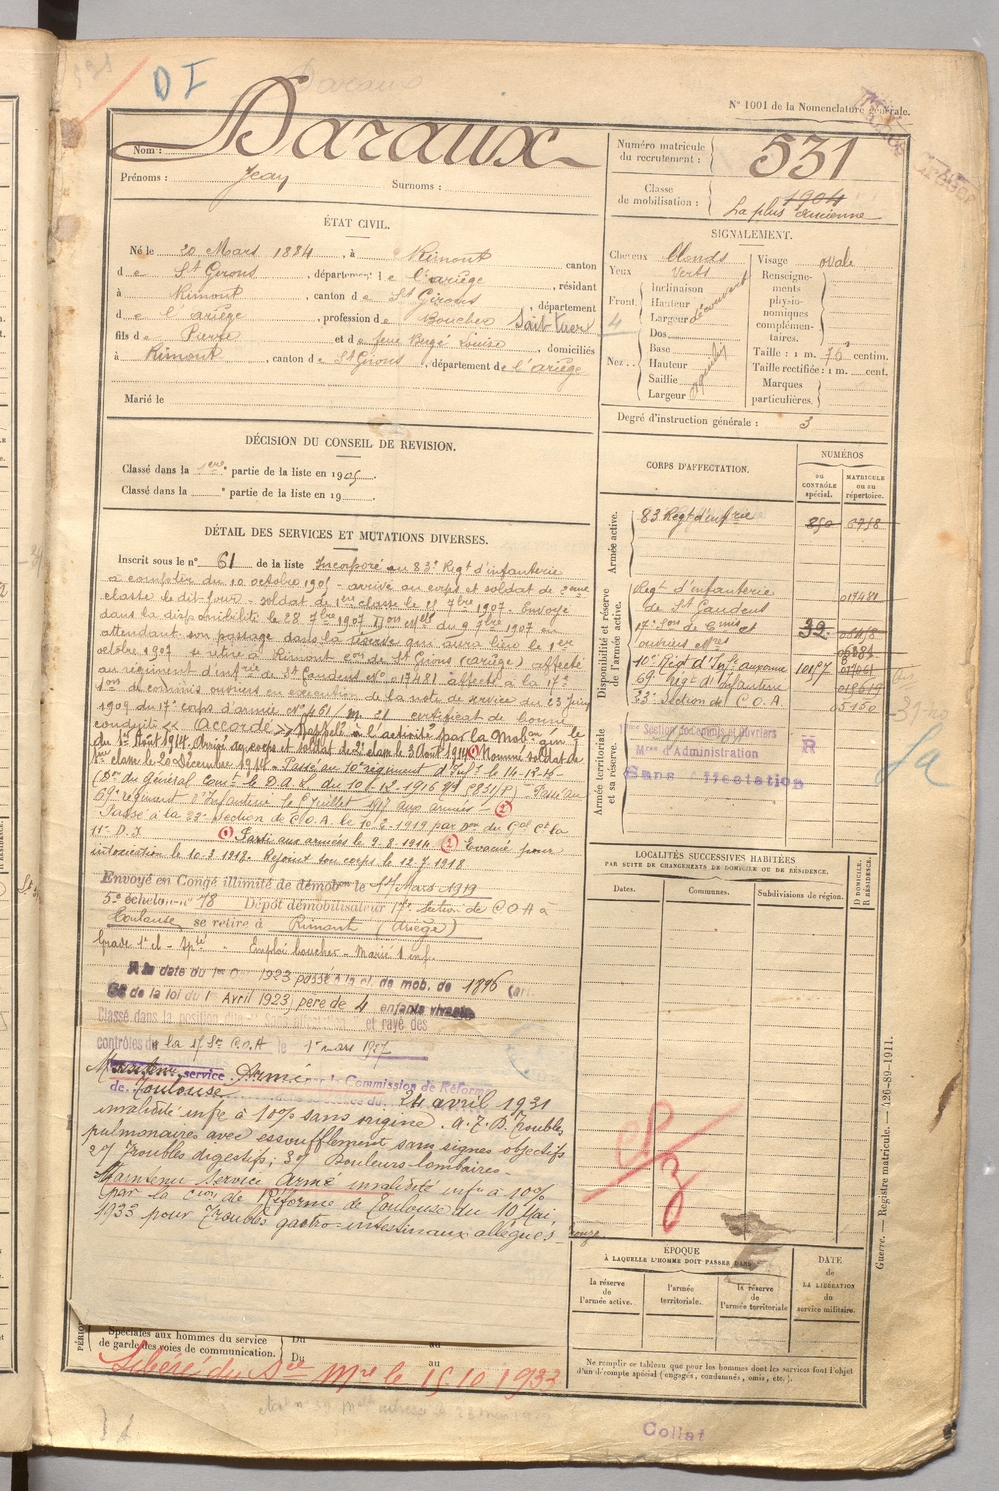 D I
N° 1001 de la Nomenclature générale.
Nom : Baraux
Prénoms : Jean Surnoms :
Numéro matricule du recrutement : 531
Classe de mobilisation : 1904
La plus ancienne
ÉTAT CIVIL.
Né le 20 Mars 1884, à Rimont canton
de St Girons, département de l'ariège, résidant
à Rimont, canton de St Girons, département
de l'ariège, profession de Boucher Sait tuer
fils de Pierre et de feue Bugé Louise, domiciliés
à Rimont, canton de St Girons, département de l'ariège
Marié le
SIGNALEMENT.
Cheveux blonds
Yeux verts
Front. Inclinaison
Hauteur
Largeur découvert
4
Nez. Dos
Base
Hauteur
Saillie
Largeur
Visage ovale
Renseignements physionomiques complémentaires.
Taille : 1 m. 76 centim.
Taille rectifiée : 1 m. cent.
Marques particulières.
Degré d'instruction générale : 3
DÉCISION DU CONSEIL DE REVISION.
Classé dans la 1ère partie de la liste en 1905.
Classé dans la e partie de la liste en 19 .
CORPS D'AFFECTATION.
NUMÉROS
DU CONTRÔLE spécial.
MATRICULE ou au répertoire.
Armée active.
83 Regt d'infrie
Disponibilité et réserve de l'armée active.
Regt d'infanterie
de St Gaudens 017481
17e Son de Cmis et
ouvriers Mres 32
10e Regt d'Infie 10157
69e Regt d'Infanterie
33e Section de C.O.A. 05160
Armée territoriale et sa réserve.
17me Section de Commis et Ouvriers
Mres d'Administration
Sans affectation
R
DÉTAIL DES SERVICES ET MUTATIONS DIVERSES.
Inscrit sous le n° 61 de la liste Incorporé au 83e Regt d'infanterie
à compter du 10 octobre 1905 - arrivé au corps et soldat de 2eme
classe le dit jour - soldat de 1ère classe le 7bre 1907. Envoyé
dans la disponibilité le 28 7bre 1907 Don Mlle du 9 7bre 1907 en
attendant son passage dans la réserve qui aura lieu le 1er
octobre 1907 se retire à Rimont con de St Girons (ariège) affecté
au régiment d'infrie de St Gaudens N° 017481 affecté à la 17e
Son de commis ouvriers en exécution de la note de service du 23 Juin
1909 du 17e corps d'armée N° 461/ certificat de bonne
conduite « accordé » Rappelé à l'activité par la Mobon gale
du 1er Août 1914. Arrivé au corps et soldat de 2e classe le 3 Août 1914 (1) Nommé soldat de
1ere classe le 20 Décembre 1914 - Passé au 10e régiment d'Infie le 14-12-16
(Dn du Général Comt le D.A.L du 10-12-1916 N° 6831/P) - Passé au
69e régiment d'Infanterie le 6 Juillet 1917 aux armées - (2)
Passé à la 22e Section de C.O.A. le 10-2-1919 par Don du Gal Ct la
11e D.I. (1) Parti aux armées le 9-8-1914 (2) Evacué pour
intoxication le 10-3-1918. Rejoint son corps le 12-7-1918
Envoyé en Congé illimité de démobon le Mars 1919
5e échelon n° 78 Dépôt démobilisateur 17e Section de COA à
Toulouse se retire à Rimont (Ariège)
Grade 1e cl - Emploi boucher - Marié 1 enf.
A la date du 1er 1923 passé à la cl. de mob. de 1896 (art.
58 de la loi du 1er Avril 1923, père de 4 enfants vivants
Classé dans la position dite "sans affectation" et rayé des
contrôles de la 17 Son COA le 1er mars 1927
Maintenu service Armé par la Commission de Réforme
de Toulouse 24 avril 1931
invalidité infre à 10% sans origine. Troubles
pulmonaires avec essoufflement sans signes objectifs
2°/ Troubles digestifs; 3°/ Douleurs lombaires -
Maintenu service armé invalidité infre à 10%
par la Cion de Réforme de Toulouse du 10 Mai
1933 pour Troubles gastro-intestinaux allégués -
Spéciales aux hommes du service de garde des voies de communication.
Du au
Du au
Libéré du Sce Mre le 15.10.1933
LOCALITÉS SUCCESSIVES HABITÉES
PAR SUITE DE CHANGEMENTS DE DOMICILE OU DE RÉSIDENCE.
Dates. Communes. Subdivisions de région. D DOMICILE. R RÉSIDENCE.
ÉPOQUE
À LAQUELLE L'HOMME DOIT PASSER DANS
la réserve de l'armée active.
l'armée territoriale.
la réserve de l'armée territoriale
DATE de LA LIBÉRATION du service militaire.
Ne remplir ce tableau que pour les hommes dont les services font l'objet
d'un décompte spécial (engagés, condamnés, omis, etc.).
Guerre. — Registre matricule. — 426-89-1911.
Collat